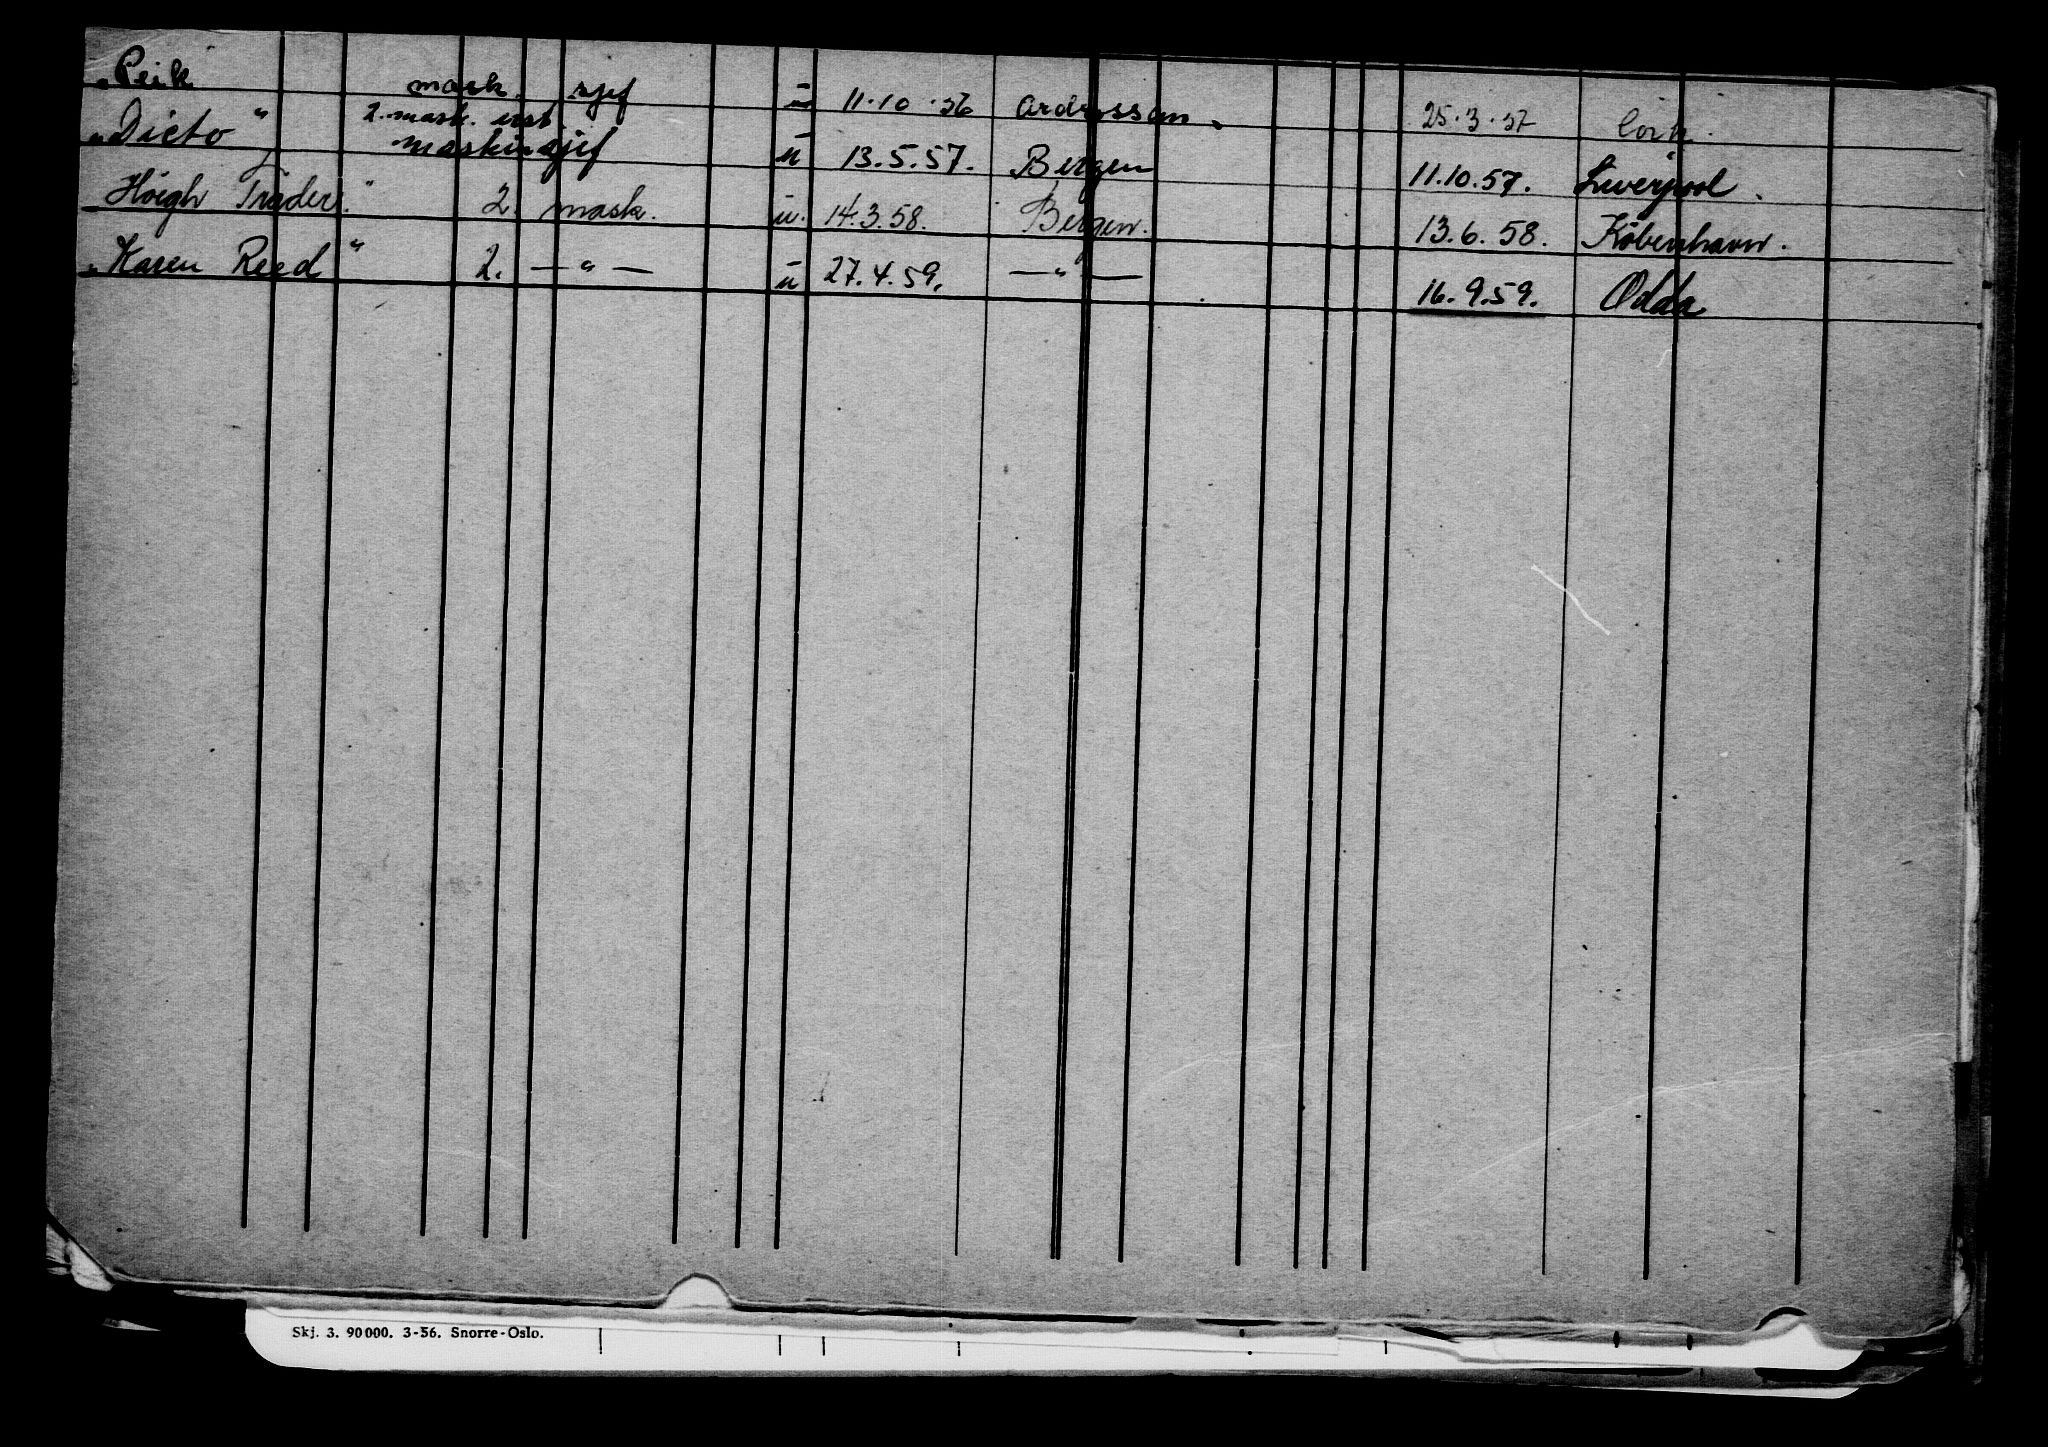 „Peik mask. sjef ū 11.10.56 Ardrossan. 25.3.57 Cork.
2. mask. inst
„Dicto" maskinsjef ū 13.5.57. Bergen 11.10.57. Liverpool.
„Höigh Trader." 2. mask. ū. 14.3.58. Bergen. 13.6.58. Köbenhavn.
„Karen Reed" 2. —"— ū 27.4.59. —"— 16.9.59. Odda
Skj. 3. 90000. 3-56. Snorre-Oslo.